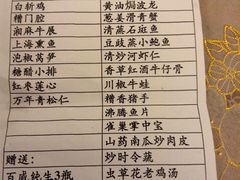 白斩鸡
糟门腔
湘麻牛展
上海熏鱼
泡椒莴笋
糖醋小排
红枣莲心
万年青松仁
赠送:
百威纯生3瓶
黄油焗波龙
葱姜滑青蟹
清蒸石斑鱼
豆豉蒸小鲍鱼
清炒河虾仁
香草红酒牛仔骨
川椒牛蛙
糟香猪手
沸腾鱼片
雀巢掌中宝
山药南瓜炒肉皮
炒时令蔬
虫草花老鸡汤